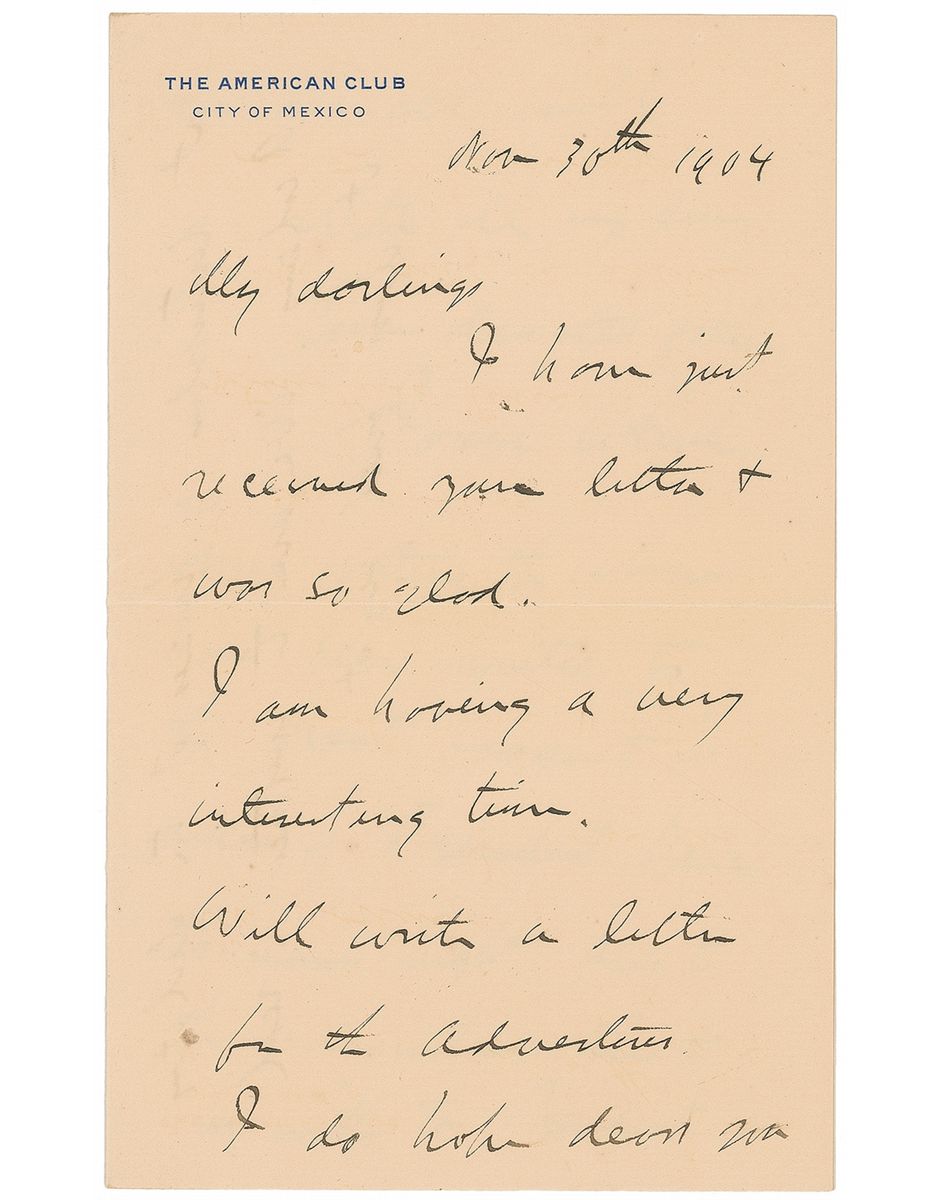 THE AMERICAN CLUB
CITY OF MEXICO
Nov 30th 1904
My darlings
I have just
received your letter &
was so glad.
I am having a very
interesting time.
Will write a letter
for the Advertiser.
I do hope dears you